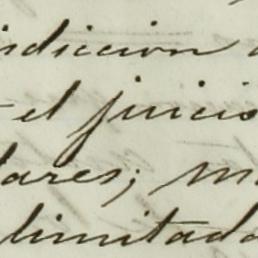 sdiccion
el juicio
lares; m
limitada